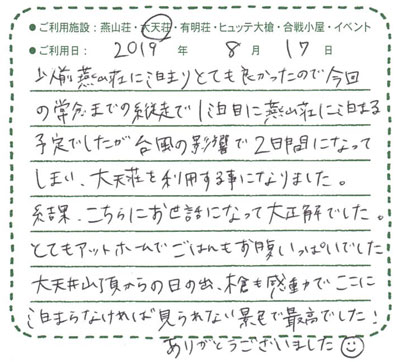 ●ご利用施設：燕山荘・大天荘・有明荘・ヒュッテ大槍・合戦小屋・イベント
●ご利用日： 2019 年 8 月 17 日
以前燕山荘に泊まりとても良かったので今回
の常念までの縦走で1泊目に燕山荘に泊まる
予定でしたが台風の影響で2日間になって
しまい、大天荘を利用する事になりました。
結果、こちらにお世話になって大正解でした。
とてもアットホームでごはんもお腹いっぱいでした
大天井山頂からの日の出、槍も感動でここに
泊まらなければ見られない景色で最高でした！
ありがとうございました